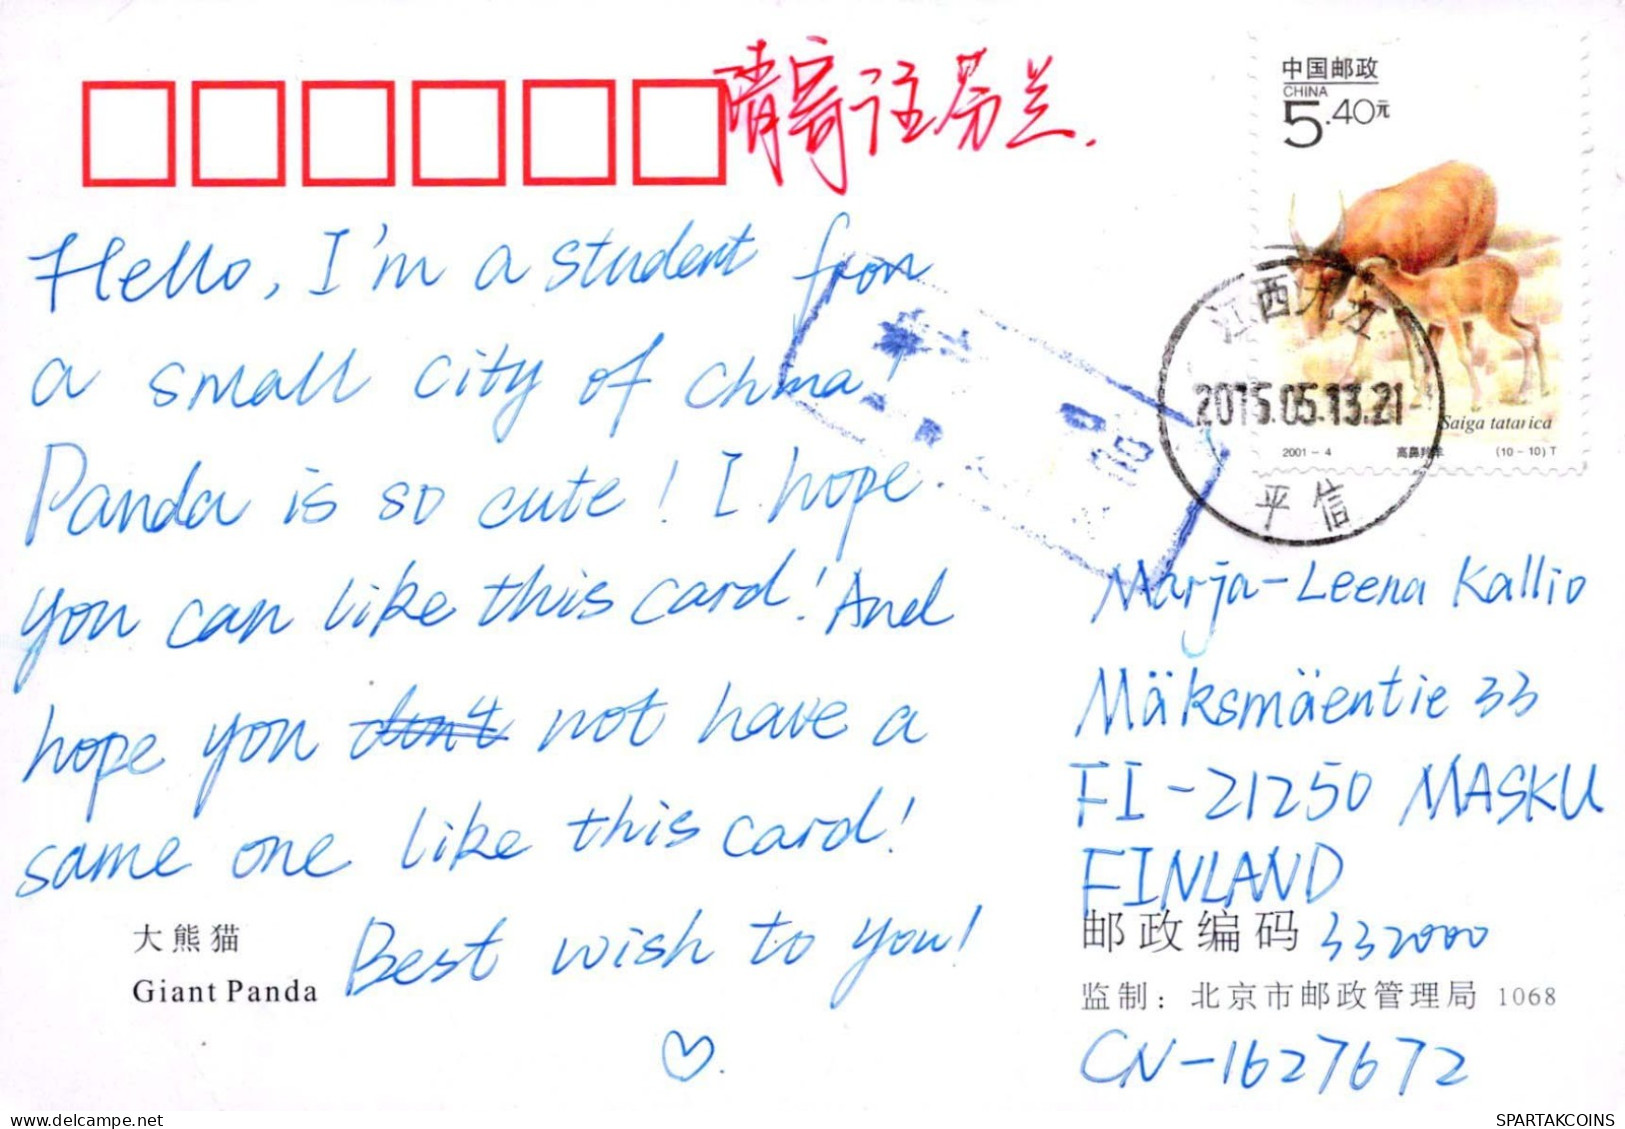 请寄往芬兰.
中国邮政
CHINA
5.40元
江西九江
2015.05.13.21
平信
Saiga tatarica
2001-4 高鼻羚羊 (10-10)T
Hello, I'm a student from
a small city of China!
Panda is so cute! I hope
you can like this card! And
hope you don't not have a
same one like this card!
Best wish to you!
大熊猫
Giant Panda
Marja-Leena Kallio
Mäksmäentie 33
FI-21250 MASKU
FINLAND
邮政编码 332000
监制: 北京市邮政管理局 1068
CN-1627672
SPARTAKCOINS